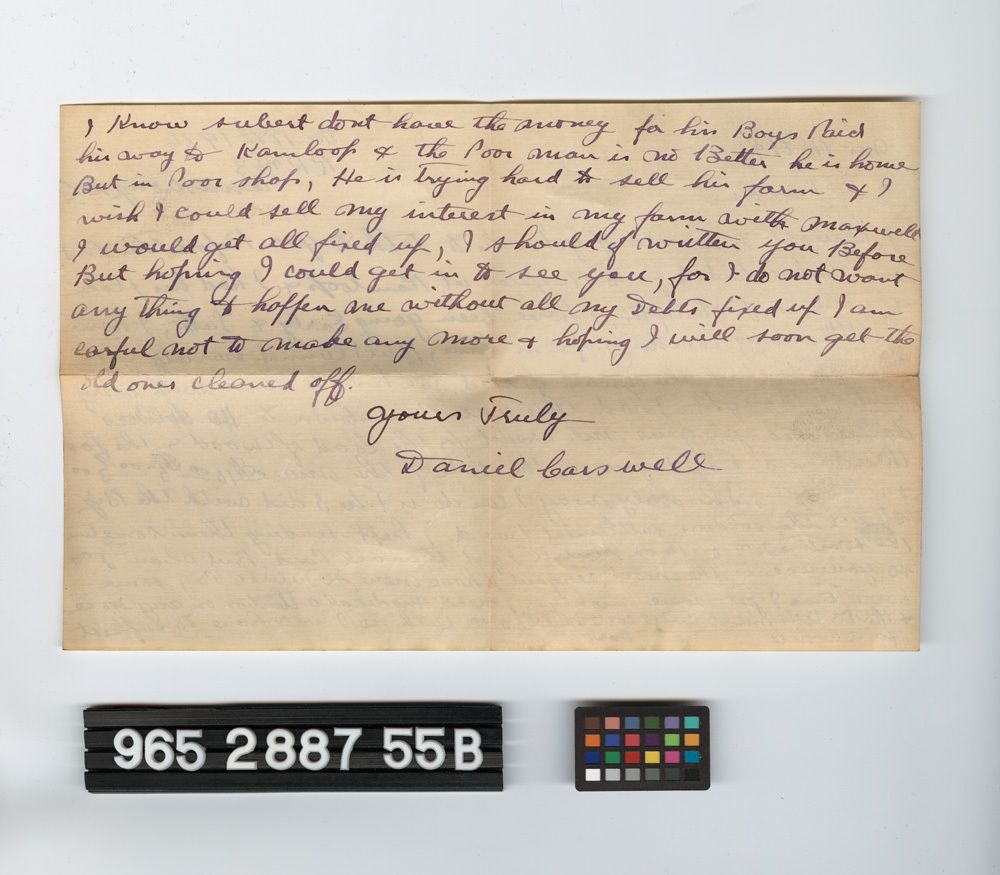 I Know subert dont have the money for his Boys Paid
his way to Kamloops & the Poor man is no Better he is home
But in Poor shap, He is trying hard to sell his farm & I
wish I could sell my interest in my farm with maxwell
I would get all fixed up, I should of written you Before
But hoping I could get in to see you, for I do not want
any thing to happen me without all my Debts fixed up I am
carful not to make any more & hoping I will soon get the
old ones cleaned off.
yours Truly
Daniel Carswell
965 2887 55B